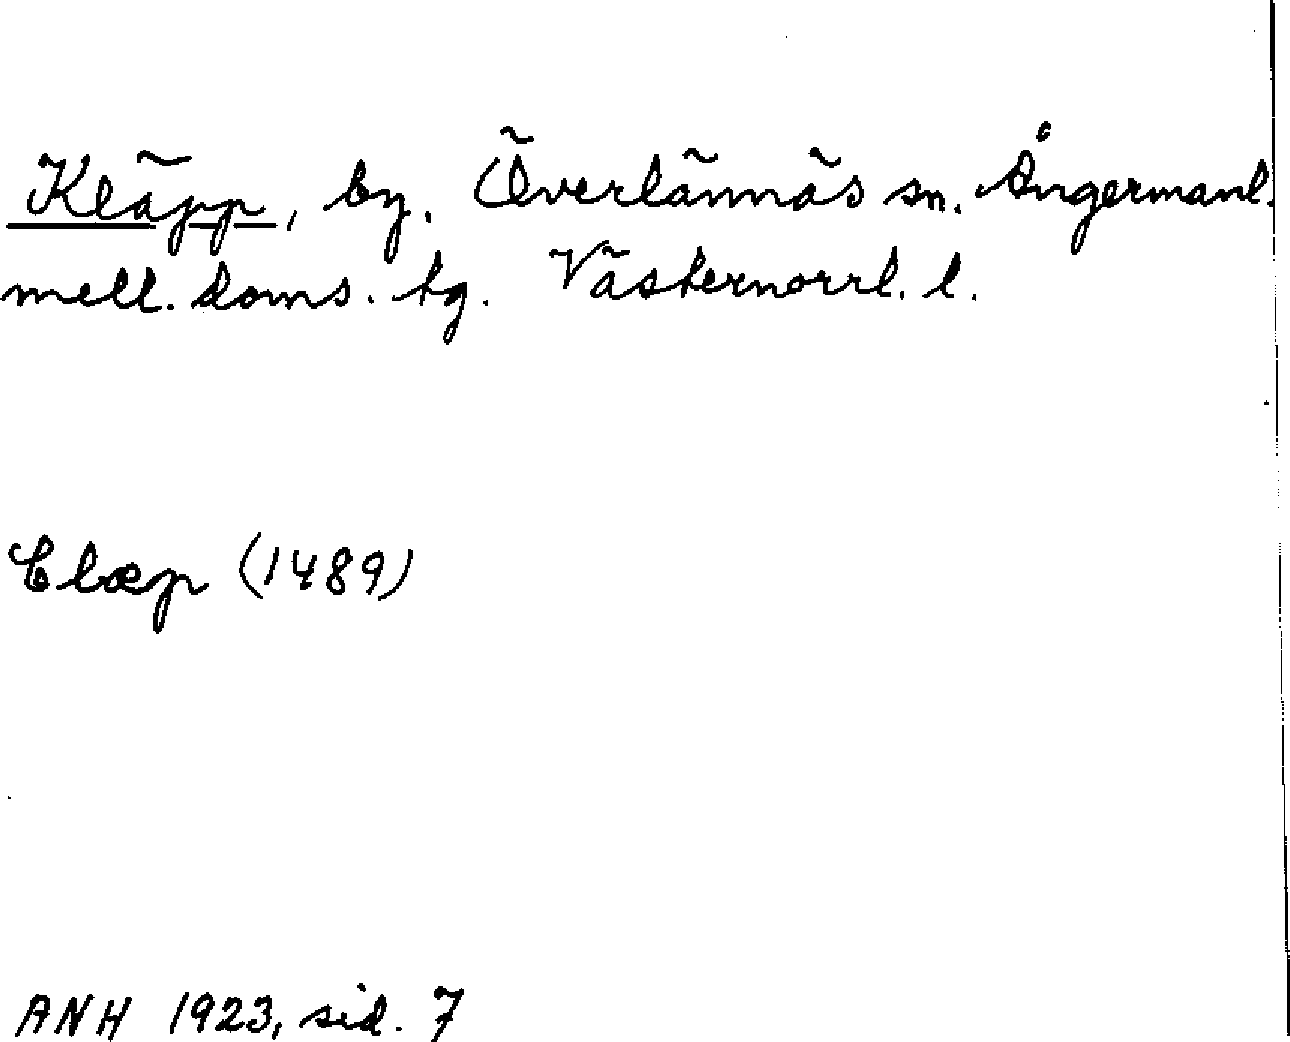 Kläpp, by. Överlännäs sn. Ångermanl.
mell. doms. tg. Västernorrl. l.
Clæp (1489)
ANH 1923, sid. 7